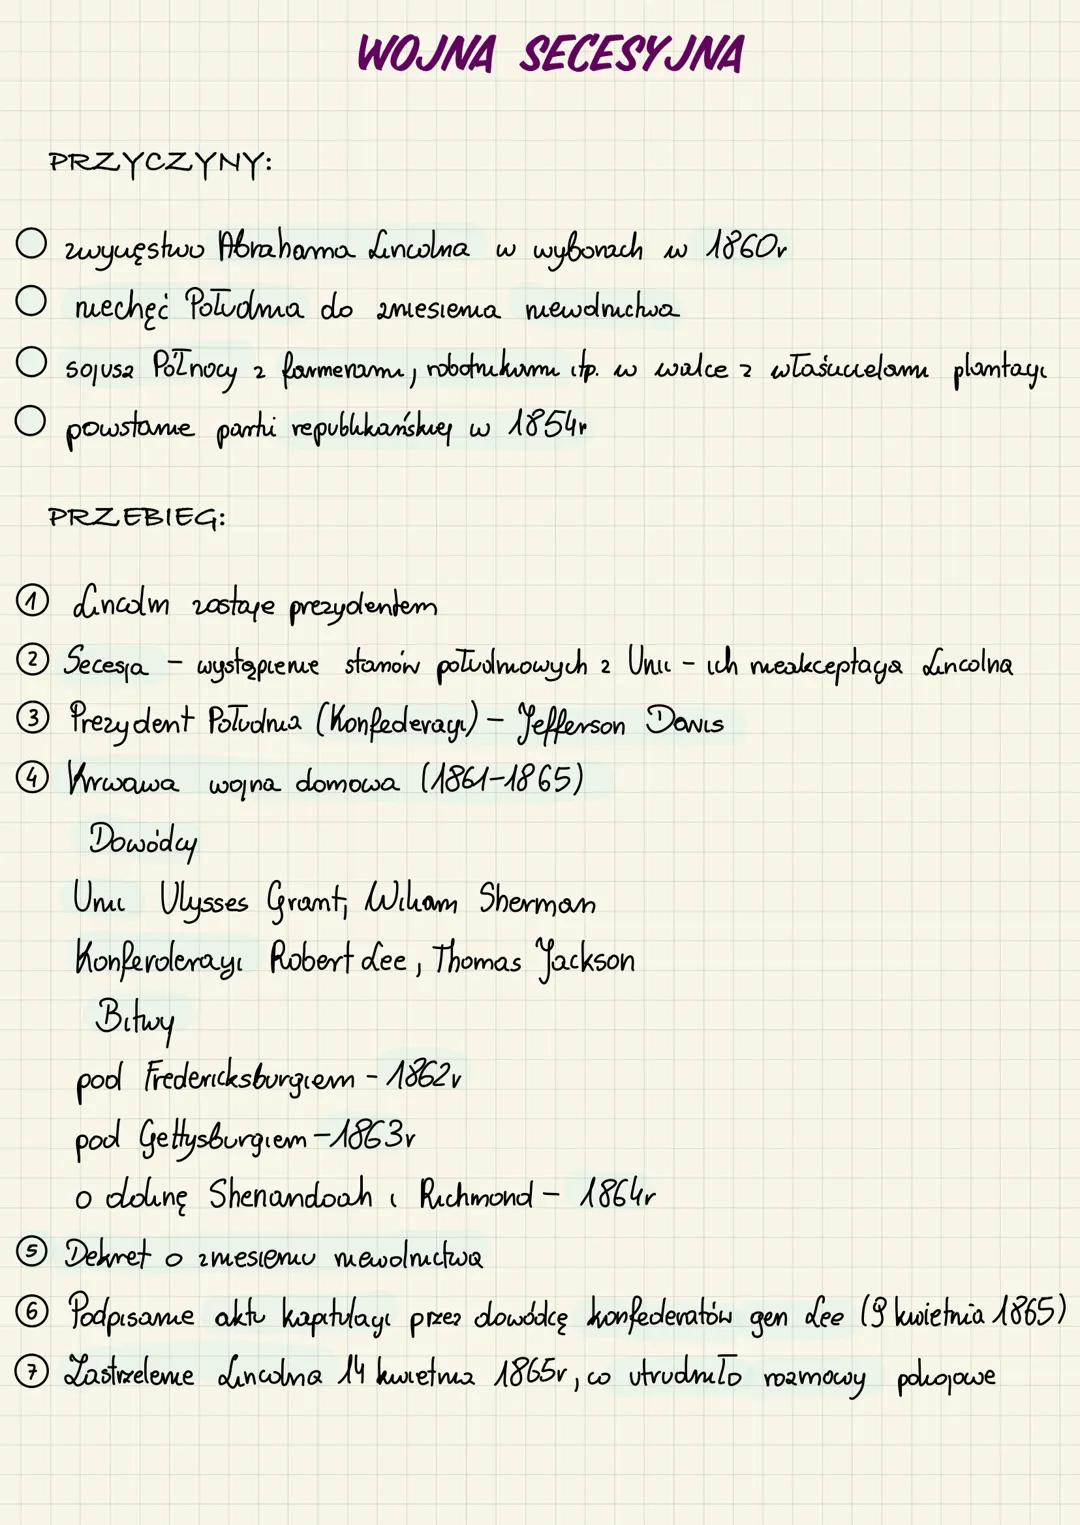 WOJNA SECESYJNA
PRZYCZYNY:
○ zwycięstwo Abrahama Lincolna w wyborach w 1860r
○ niechęć Południa do zniesienia niewolnictwa
○ sojusz Północy z farmerami, robotnikami itp. w walce z właścicielami plantacji
○ powstanie partii republikańskiej w 1854r
PRZEBIEG:
① Lincoln zostaje prezydentem
② Secesja – wystąpienie stanów południowych z Unii – ich nieakceptacja Lincolna
③ Prezydent Południa (Konfederacji) – Jefferson Davis
④ Krwawa wojna domowa (1861-1865)
Dowódcy
Unii Ulysses Grant, Wiliam Sherman
Konferoleracji Robert Lee, Thomas Jackson
Bitwy
pod Fredericksburgiem - 1862r
pod Gettysburgiem - 1863r
o dolinę Shenandoah i Richmond – 1864r
⑤ Dekret o zniesieniu niewolnictwa
⑥ Podpisanie aktu kapitulacji przez dowódcę konfederatów gen Lee (9 kwietnia 1865)
⑦ Zastrzelenie Lincolna 14 kwietnia 1865r, co utrudniło rozmowy pokojowe